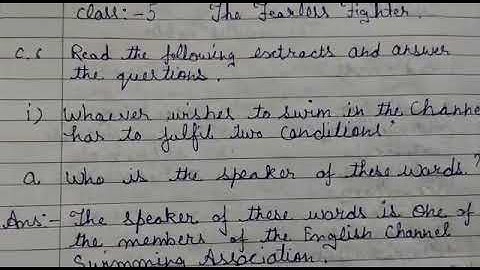 class:-5 The Fearless Fighter.
C.c Read the following extracts and answer
the questions.
i) Whoever wishes to swim in the Channe
has to fulfil two conditions.'
a Who is the speaker of these words.?
Ans:- The speaker of these words is one of
the members of the English Channel
Swimming Association.